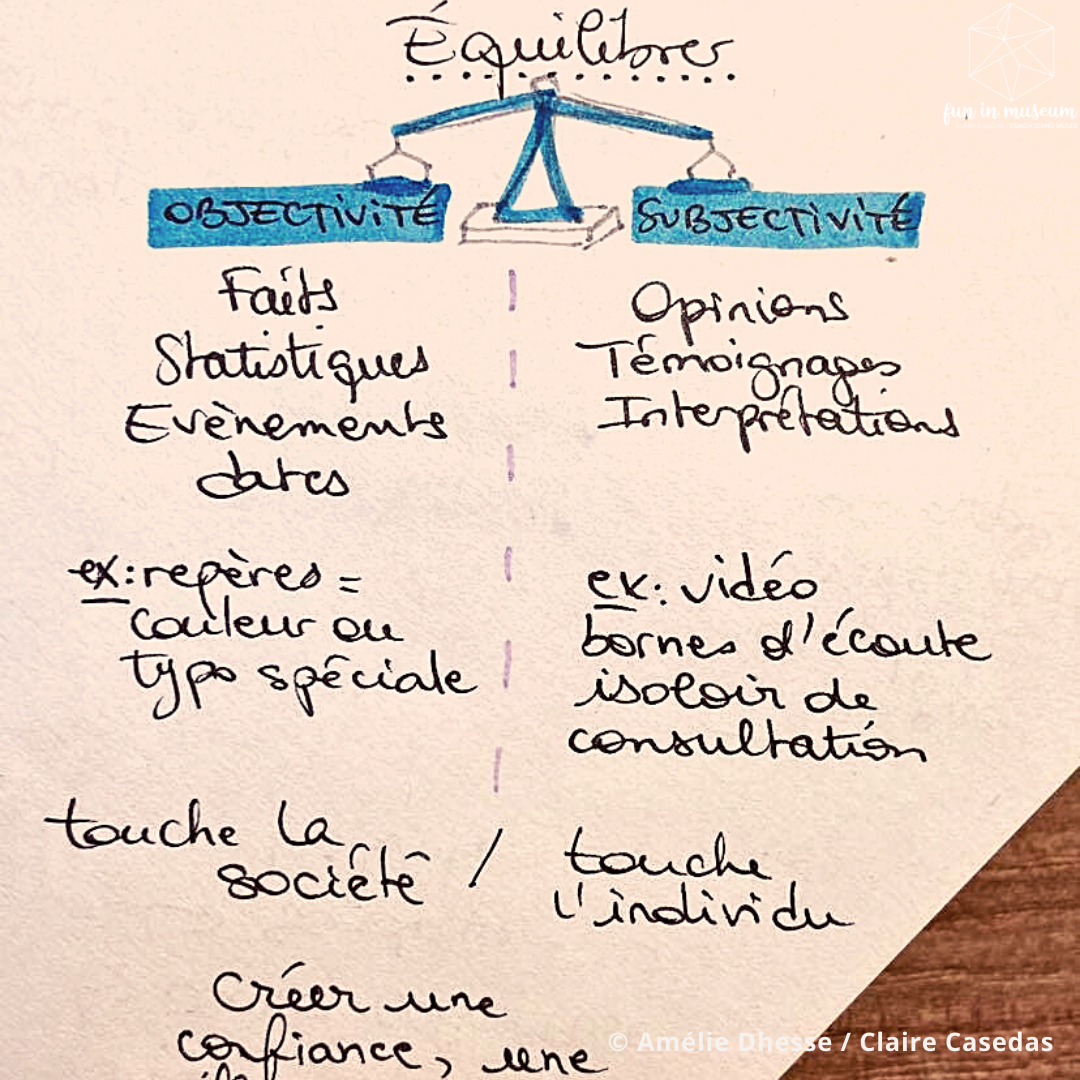 Équilibrer
fun in museum
OBJECTIVITÉ
SUBJECTIVITÉ
Faits
Statistiques
Evènements
dates
Opinions
Témoignages
Interprétations
ex: repères =
couleur ou
typo spéciale
ex: vidéo
bornes d'écoute
isoloir de
consultation
touche la
société /
touche
l'individu
Créer une
confiance, une
© Amélie Dhesse / Claire Casedas